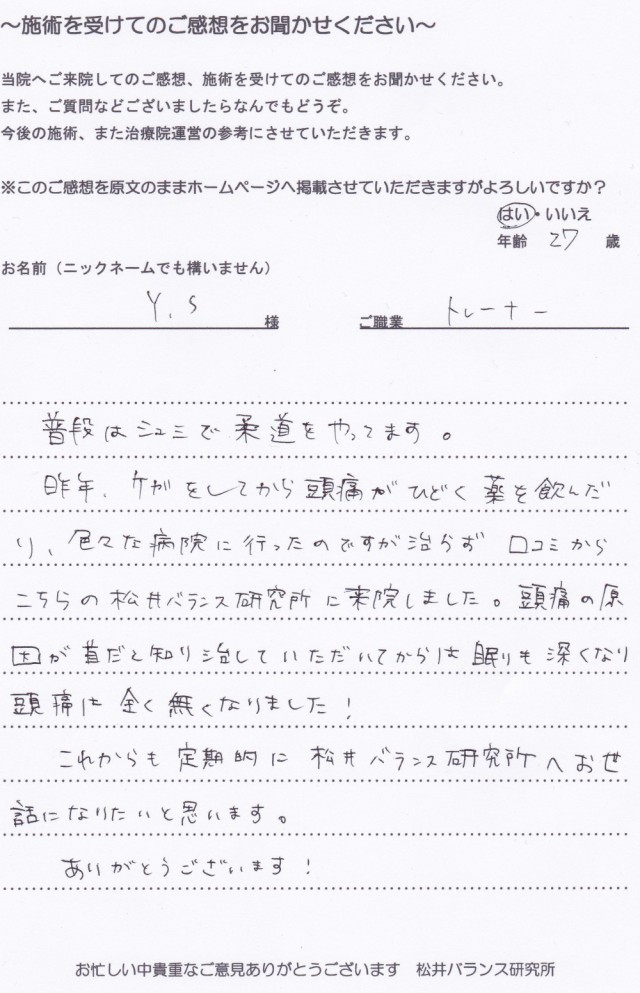 ～施術を受けてのご感想をお聞かせください～
当院へご来院してのご感想、施術を受けてのご感想をお聞かせください。
また、ご質問などございましたらなんでもどうぞ。
今後の施術、また治療院運営の参考にさせていただきます。
※このご感想を原文のままホームページへ掲載させていただきますがよろしいですか？
はい・いいえ
年齢 27 歳
お名前（ニックネームでも構いません）
Y.S 様 ご職業 トレーナー
普段はシュミで柔道をやってます。
昨年、ケガをしてから頭痛がひどく薬を飲んだ
り、色々な病院に行ったのですが治らず 口コミから
こちらの松井バランス研究所に来院しました。頭痛の原
因が首だと知り治していただいてからは眠りも深くなり
頭痛は全く無くなりました！
これからも定期的に松井バランス研究所へお世
話になりたいと思います。
ありがとうございます！
お忙しい中貴重なご意見ありがとうございます 松井バランス研究所